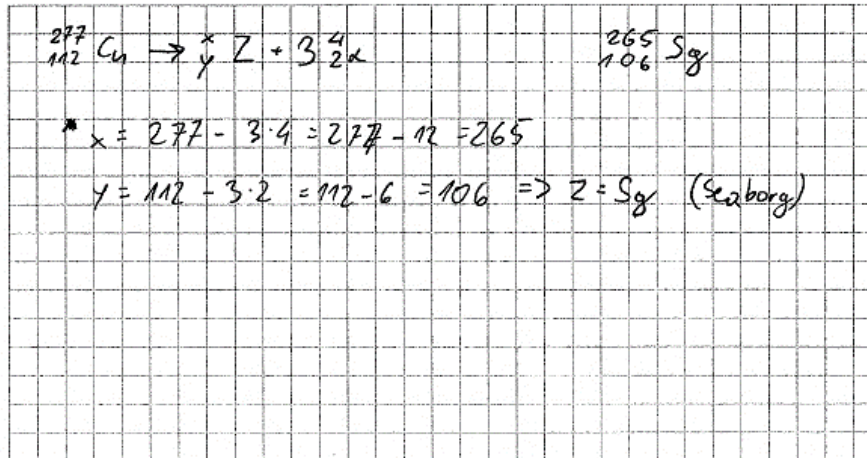 ²⁷⁷₁₁₂Cn → ˣᵧZ + 3 ⁴₂α ²⁶⁵₁₀₆Sg
* x = 277 - 3·4 = 277 - 12 = 265
y = 112 - 3·2 = 112 - 6 = 106 => Z = Sg (Seaborg)